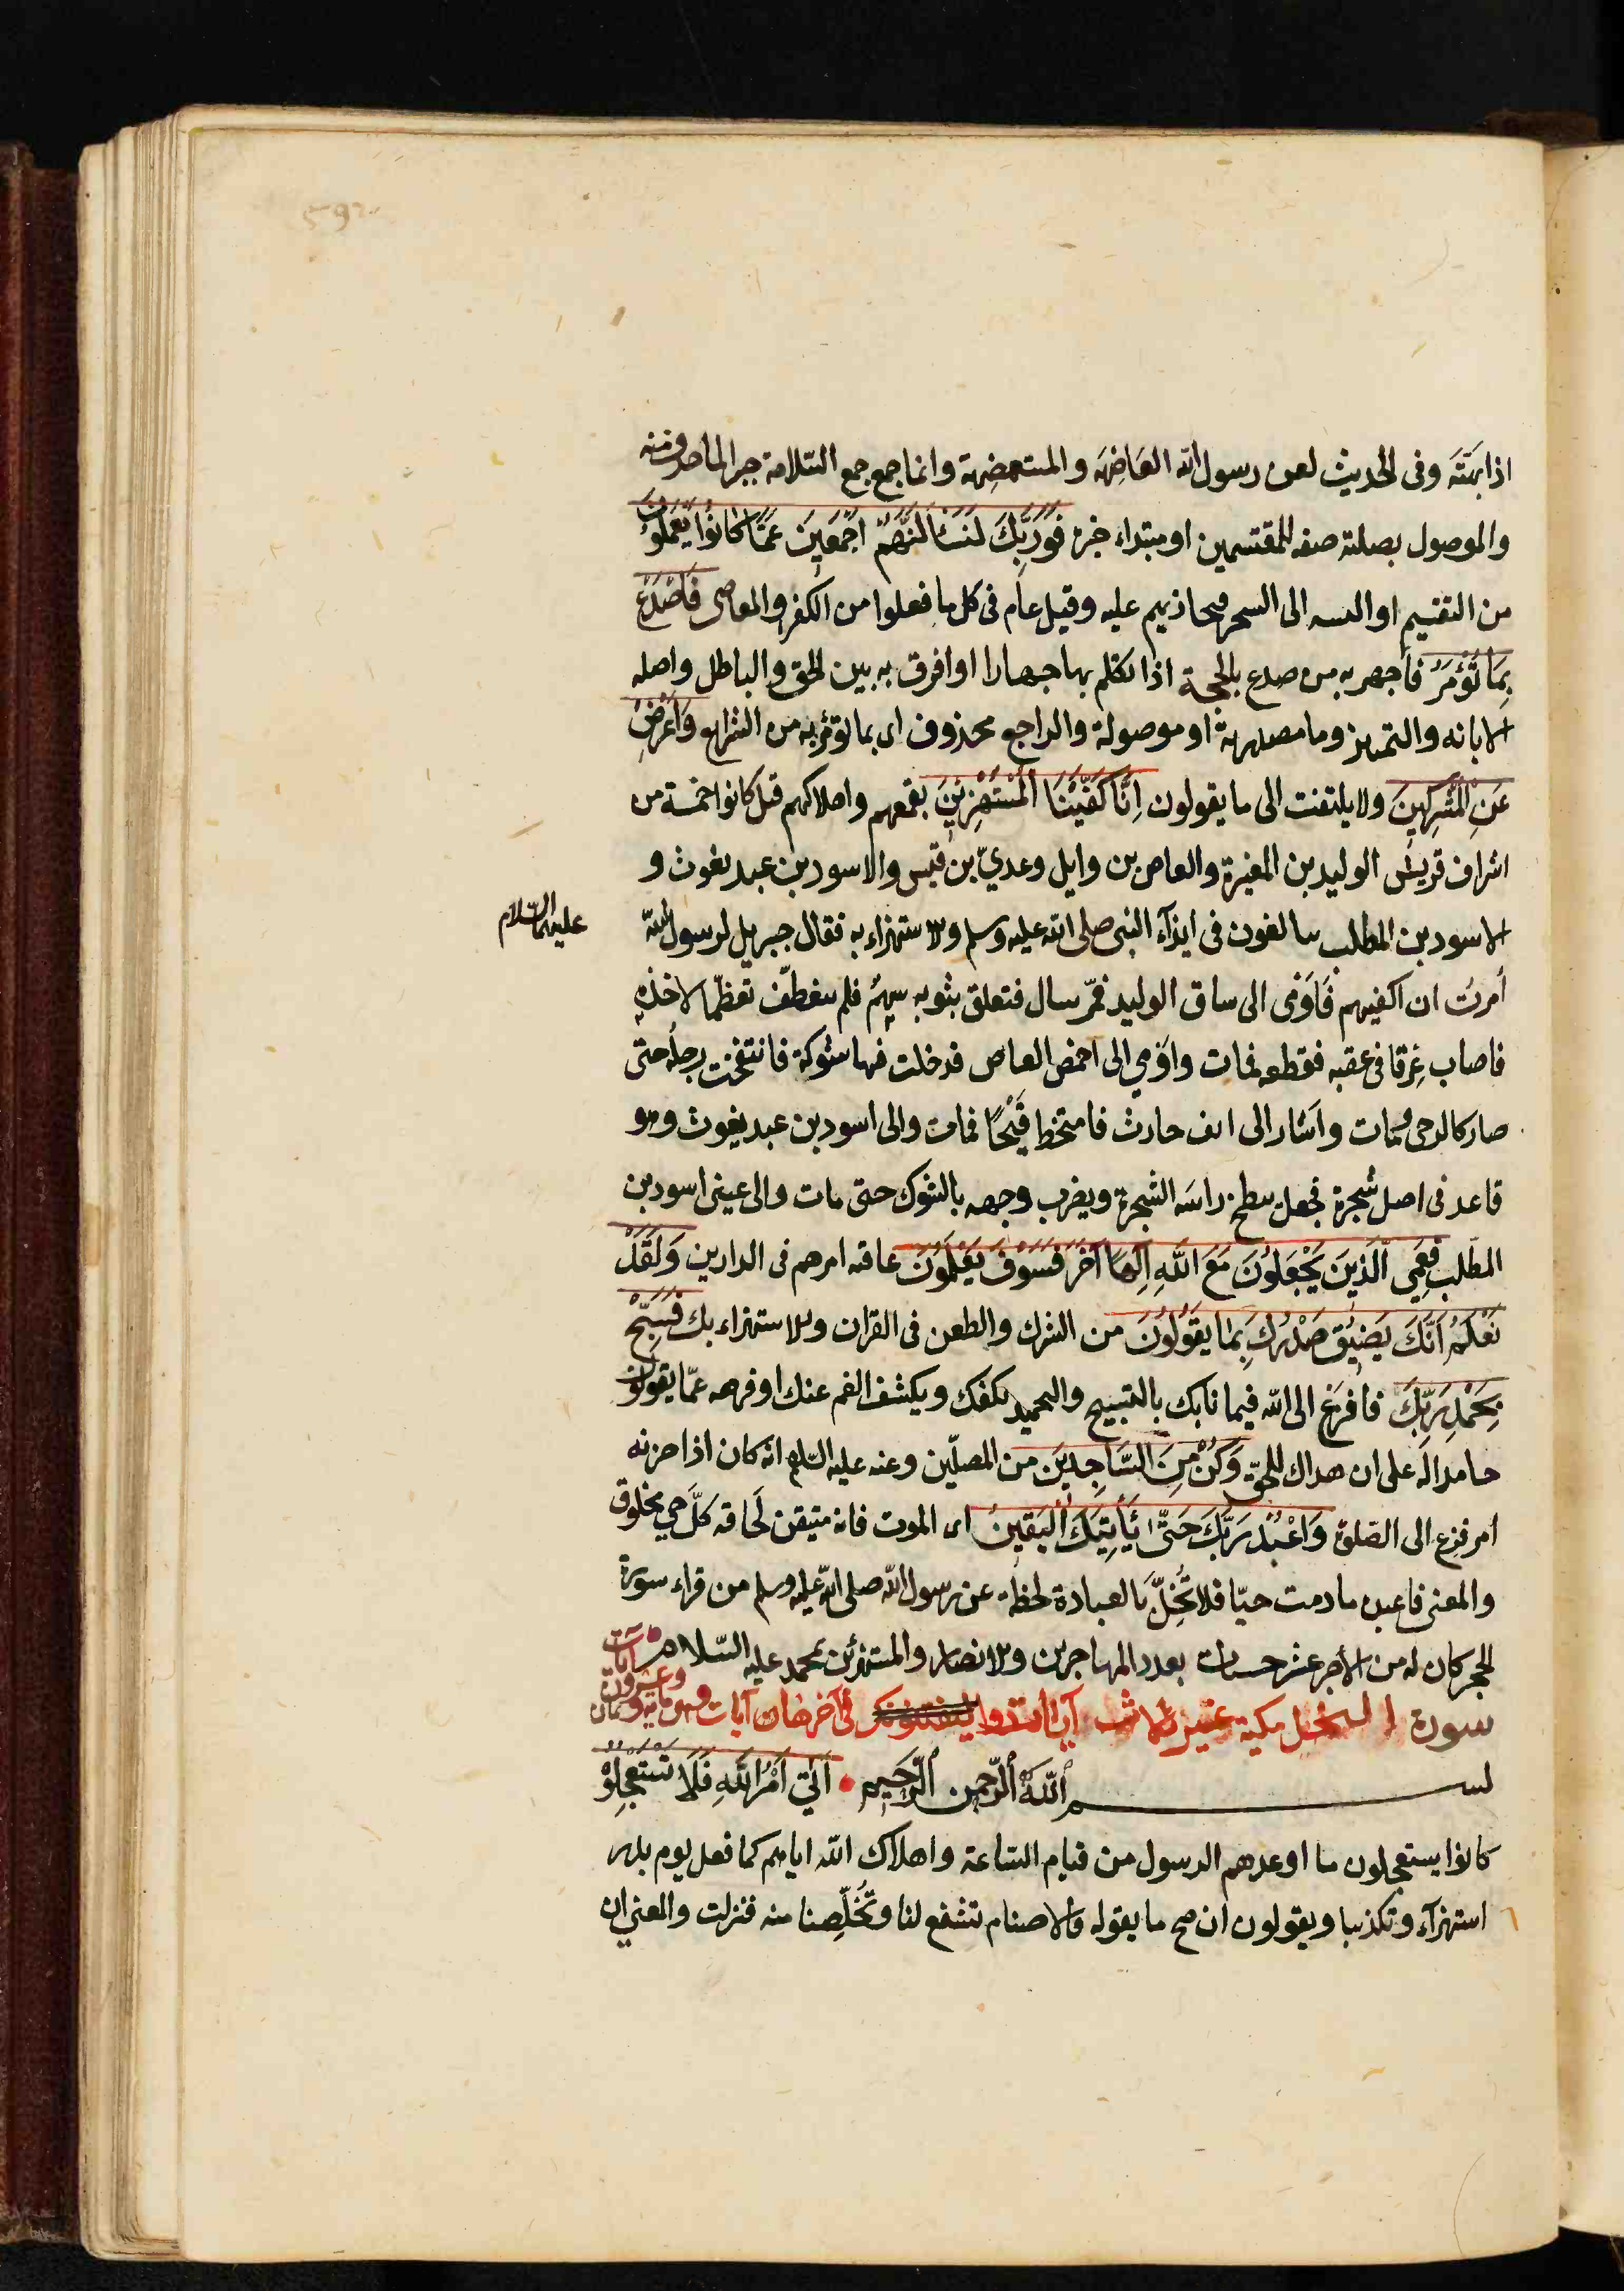 اذا بهته وفى الحديث لعن رسول الله العَاضِهَة والمستعضِهة وانما جمع جمع السّلامة جبرا لما حذف منه
والموصول بصلته صفه للمقتسمين او مبتداء خبره فَوَرَبِّكَ لَنَسْأَلَنَّهُمْ اَجْمَعِينَ عَمَّا كَانُوا يَعْمَلُونَ
من التقسيم او النسبه الى السحر فيجازيهم عليه وقيل عام فى كل ما فعلوا من الكفر والمعاصى فَاصْدَعْ
بِمَا تُؤْمَرُ فاجهر به من صدع بالحجة اذا تكلم بها جهارا او افرق به بين الحق والباطل واصله
الابانه والتمييز وما مصدرية او موصولة والراجع محذوف اى بما تؤمر به من الشرايع وَاَعْرِضْ
عَنِ الْمُشْرِكِينَ ولا يلتفت الى ما يقولون اِنَّا كَفَيْنَاكَ الْمُسْتَهْزِئِينَ بقمعهم واهلاكهم قيل كانوا خمسة من
اشراف قريش الوليد بن المغيرة والعاص بن وايل وعديّ بن قيس والاسود بن عبد يغوث و
الاسود بن المطلب يبالغون فى ايذآء النبى صلى الله عليه وسلم والاستهزاء به فقال جبريل لرسول الله
عليهما السّلام
أمرتُ ان اكفيهم فَاَوْمى الى ساق الوليد فمرّ بنبال فتعلق بثوبه سهمٌ فلم ينعطف تعظّما لاخذه
فاصاب عِرقا فى عقبه فقطعه فمات واوْمي الى اخمص العاص فدخلت فيها شوكة فانتفخت رجلُه حتى
صار كالرحى ومات واشار الى انف حارث فامتخط قَيْحًا فمات والى اسود بن عبد يغوث وهو
قاعد فى اصل شجرة فجعل ينطح راسَه الشجرة ويضرب وجهه بالشوك حتى مات والى عينى اسود بن
المطّلب فعَمِى اَلَّذِينَ يَجْعَلُونَ مَعَ اللّهِ اِلٰهًا آخَرَ فَسَوْفَ يَعْلَمُونَ عاقبه امرهم فى الدارين وَلَقَدْ
نَعْلَمُ اَنَّكَ يَضِيقُ صَدْرُكَ بِمَا يَقُولُونَ من الشرك والطعن فى القران والاستهزاء بك فَسَبِّحْ
بِحَمْدِ رَبِّكَ فافزع الى الله فيما نابك بالتسبيح والتحميد يكفك ويكشف الغم عنك او فنزهه عمّا يقولون
حامدا له على ان هداك للحقّ وَكُنْ مِنَ السَّاجِدِينَ من المصلّين وعنه عليه السّلم انه كان اذا حزنه
أمر فزع الى الصّلوة وَاعْبُدْ رَبَّكَ حَتَّى يَأْتِيَكَ الْيَقِينُ اى الموت فانه متيقن لحَاقه كلَّ حي مخلوق
والمعنى فاعبده ما دمت حيّا فلا تُخِلّ بالعبادة لحظة عن رسول الله صلى الله عليه وسلم من قراء سورة
الحجر كان له من الأجر عشر حسنات بعدد المهاجرين والانصار والمستهزئين بمحمد عليه السّلام
سورة النحل مكية غير ثلاث آيات فى آخرها وهى ماية وثمان وعشرون آيات
بسم اللّهِ الرَّحمن الرَّحيم اَتٰى اَمْرُ اللّهِ فَلَا تَسْتَعْجِلُوهُ
كانوا يستعجلون ما اوعدهم الرسول من قيام السّاعة واهلاك الله اياهم كما فعل يوم بدر
استهزآء وتكذيبا ويقولون ان صح ما يقوله فالاصنام تشفع لنا وتُخلّصنا منه فنزلت والمعنى ان